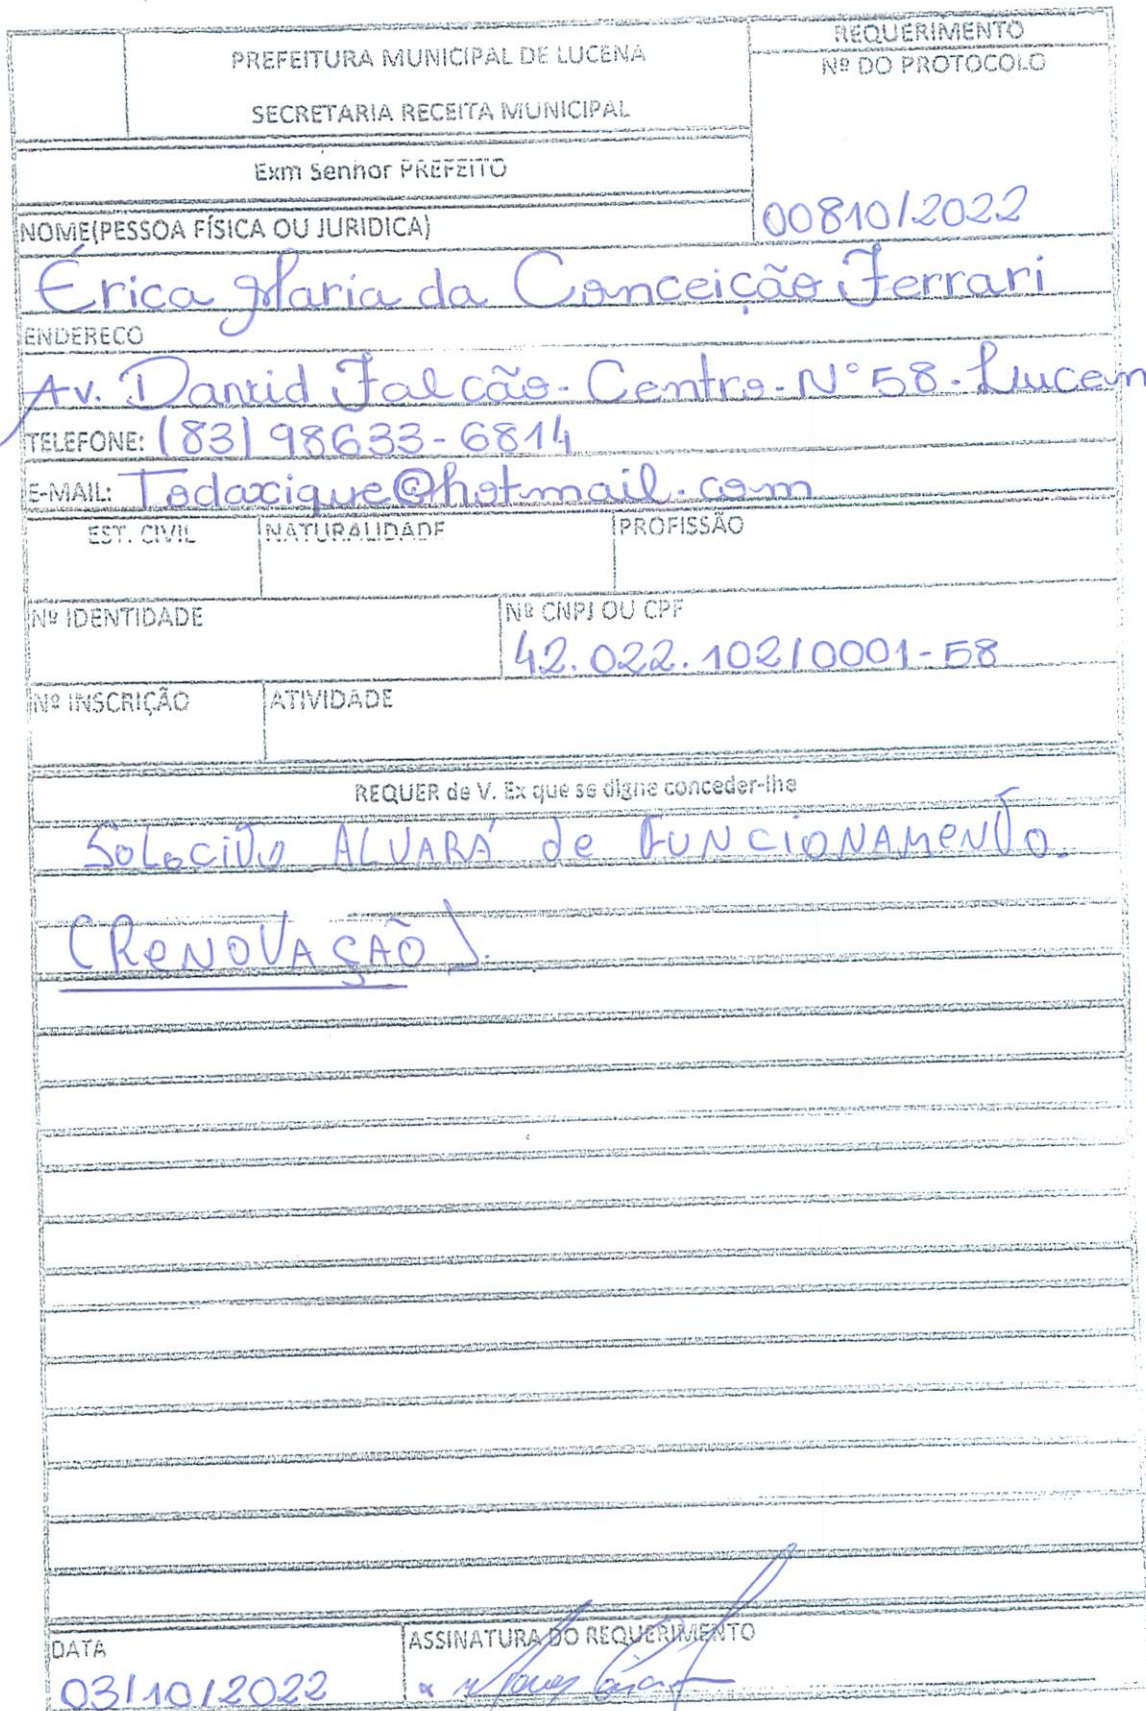 REQUERIMENTO
PREFEITURA MUNICIPAL DE LUCENA
Nº DO PROTOCOLO
SECRETARIA RECEITA MUNICIPAL
Exm Senhor PREFEITO
00810/2022
NOME(PESSOA FÍSICA OU JURIDICA)
Érica Maria da Conceição Ferrari
ENDERECO
Av. David Falcão - Centro - N° 58 - Lucen
TELEFONE: (83) 98633-6814
E-MAIL: Todaxique@hotmail.com
EST. CIVIL NATURALIDADE PROFISSÃO
Nº IDENTIDADE Nº CNPJ OU CPF
42.022.102/0001-58
Nº INSCRIÇÃO ATIVIDADE
REQUER de V. Ex que se digne conceder-lhe
Solocito ALVARÁ de FUNCIONAMENTO.
(RENOVAÇÃO).
DATA ASSINATURA DO REQUERIMENTO
03/10/2022